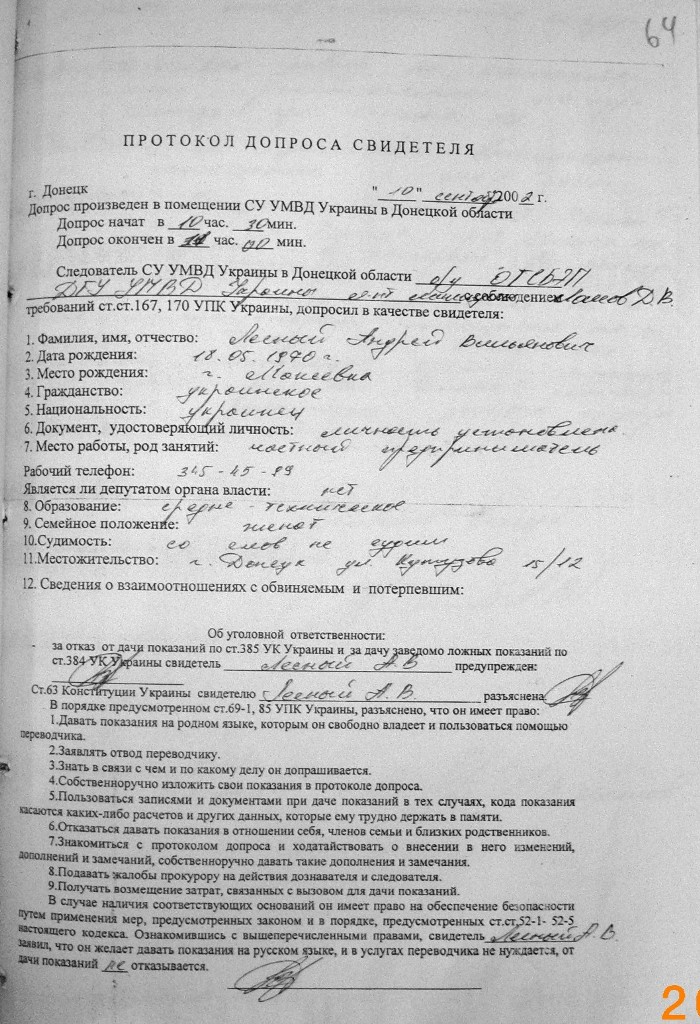 64
ПРОТОКОЛ ДОПРОСА СВИДЕТЕЛЯ
г. Донецк "10" сентября 2002 г.
Допрос произведен в помещении СУ УМВД Украины в Донецкой области
Допрос начат в 10 час. 30 мин.
Допрос окончен в час. 00 мин.
Следователь СУ УМВД Украины в Донецкой области о/у ОГСБЭП
ДГУ УМВД Украины с соблюдением Д.В.
требований ст.ст.167, 170 УПК Украины, допросил в качестве свидетеля:
1. Фамилия, имя, отчество: Лесный Андрей Вильянович
2. Дата рождения: 18.05.1970 г.
3. Место рождения: г. Макеевка
4. Гражданство: украинское
5. Национальность: украинец
6. Документ, удостоверяющий личность: личность установлена
7. Место работы, род занятий: частный предприниматель
Рабочий телефон: 345-45-99
Является ли депутатом органа власти: нет
8. Образование: средне-техническое
9. Семейное положение: женат
10.Судимость: со слов не судим
11.Местожительство: г. Донецк ул. Кутузова 15/12
12. Сведения о взаимоотношениях с обвиняемым и потерпевшим:
Об уголовной ответственности:
за отказ от дачи показаний по ст.385 УК Украины и за дачу заведомо ложных показаний по
ст.384 УК Украины свидетель Лесный А.В предупрежден:
Ст.63 Конституции Украины свидетелю Лесный А.В. разъяснена
В порядке предусмотренном ст.69-1, 85 УПК Украины, разъяснено, что он имеет право:
1.Давать показания на родном языке, которым он свободно владеет и пользоваться помощью
переводчика.
2.Заявлять отвод переводчику.
3.Знать в связи с чем и по какому делу он допрашивается.
4.Собственноручно изложить свои показания в протоколе допроса.
5.Пользоваться записями и документами при даче показаний в тех случаях, кода показания
касаются каких-либо расчетов и других данных, которые ему трудно держать в памяти.
6.Отказаться давать показания в отношении себя, членов семьи и близких родственников.
7.Знакомиться с протоколом допроса и ходатайствовать о внесении в него изменений,
дополнений и замечаний, собственноручно давать такие дополнения и замечания.
8.Подавать жалобы прокурору на действия дознавателя и следователя.
9.Получать возмещение затрат, связанных с вызовом для дачи показаний.
В случае наличия соответствующих оснований он имеет право на обеспечение безопасности
путем применения мер, предусмотренных законом и в порядке, предусмотренных ст.ст.52-1- 52-5
настоящего кодекса. Ознакомившись с вышеперечисленными правами, свидетель Лесный А.В.
заявил, что он желает давать показания на русском языке, и в услугах переводчика не нуждается, от
дачи показаний не отказывается.